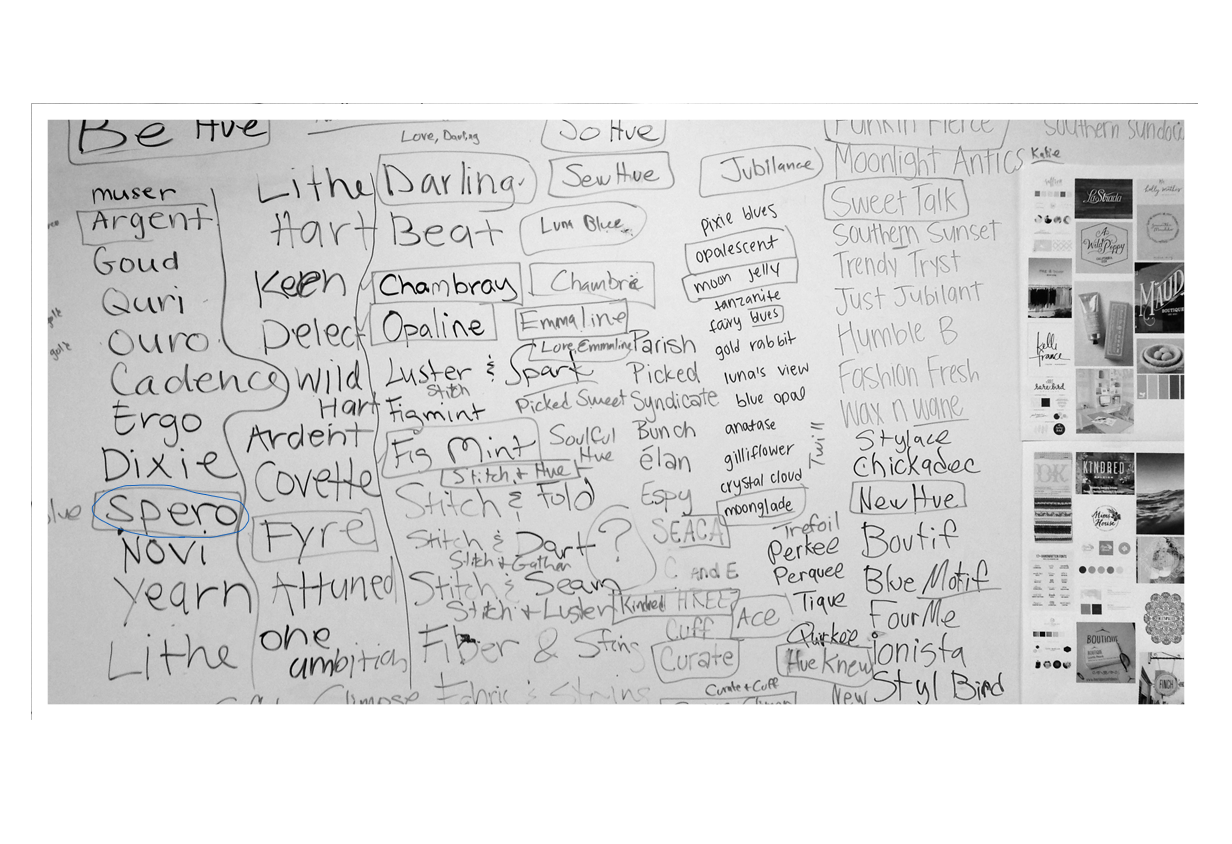 Be Hue
muser
Argent
Goud
Quri
Ouro
Cadence
Ergo
Dixie
Spero
Novi
Yearn
Lithe
Lithe
Hart
Keen
Delect
Wild
Hart
Ardent
Covette
Fyre
Attuned
one
ambition
Love, Darling
Darling
Beat
Chambray
Opaline
Luster & Spark
Stitch
Figmint
Fig Mint
Stitch & Hue
Stitch & Fold
Stitch & Dart
Stitch & Gather
Stitch & Seam
Stitch & Luster
Fiber & String
Glimpse Fabric & Strings
So Hue
Sew Hue
Luna Blue
Chambré
Emmaline
Love, Emmaline
Picked Sweet
Soulful
Hue
?
Parish
Picked
Syndicate
Bunch
élan
Espy
SEACA
C and E
Kindred THREE
Cuff
Ace
Curate
Curate + Cuff
Jubilance
pixie blues
opalescent
moon jelly
tanzanite
fairy blues
gold rabbit
luna's view
blue opal
anatase
gilliflower
crystal cloud
moonglade
Twill
Trefoil
Perkee
Perquee
Tique
Quirkee
Hue Knew
New
Funkin Fierce
Moonlight Antics
Sweet Talk
Southern Sunset
Trendy Tryst
Just Jubilant
Humble B
Fashion Fresh
Wax n wane
Stylace
Chickadee
New Hue
Boutif
Blue Motif
FourMe
ionista
Styl Bird
Southern Sundace
Katie
La Strada
A
Wild Poppy
MAUD
BOUTIQUE
kelli
france
rare bird
OK
KINDRED
Mimi's
House
BOUTIQUE
FINCH